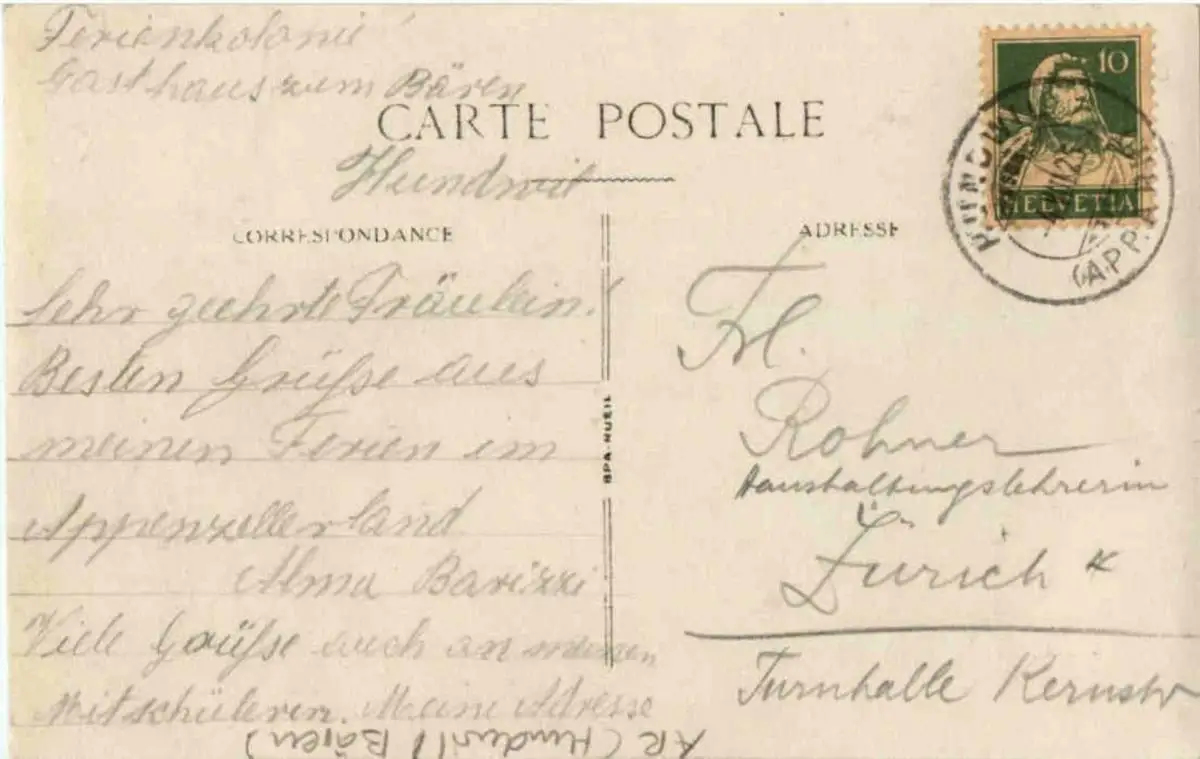 Ferienkolonie
Gasthaus zum Bären
CARTE POSTALE
Hundwil
CORRESPONDANCE
Sehr geehrte Fräulein!
Besten Grüße aus
meinen Ferien im
Appenzellerland
Alma Barizzi
Viele Grüße auch an meinen
Mitschüleren. Meine Adresse
AR (Hundwil Bären)
SPA-RUEIL
ADRESSE
Frl.
Rohner
Haushaltungslehrerin
Zürich
Turnhalle Kernstr
10
HELVETIA
HUNDWIL
(APP. A. RH.)